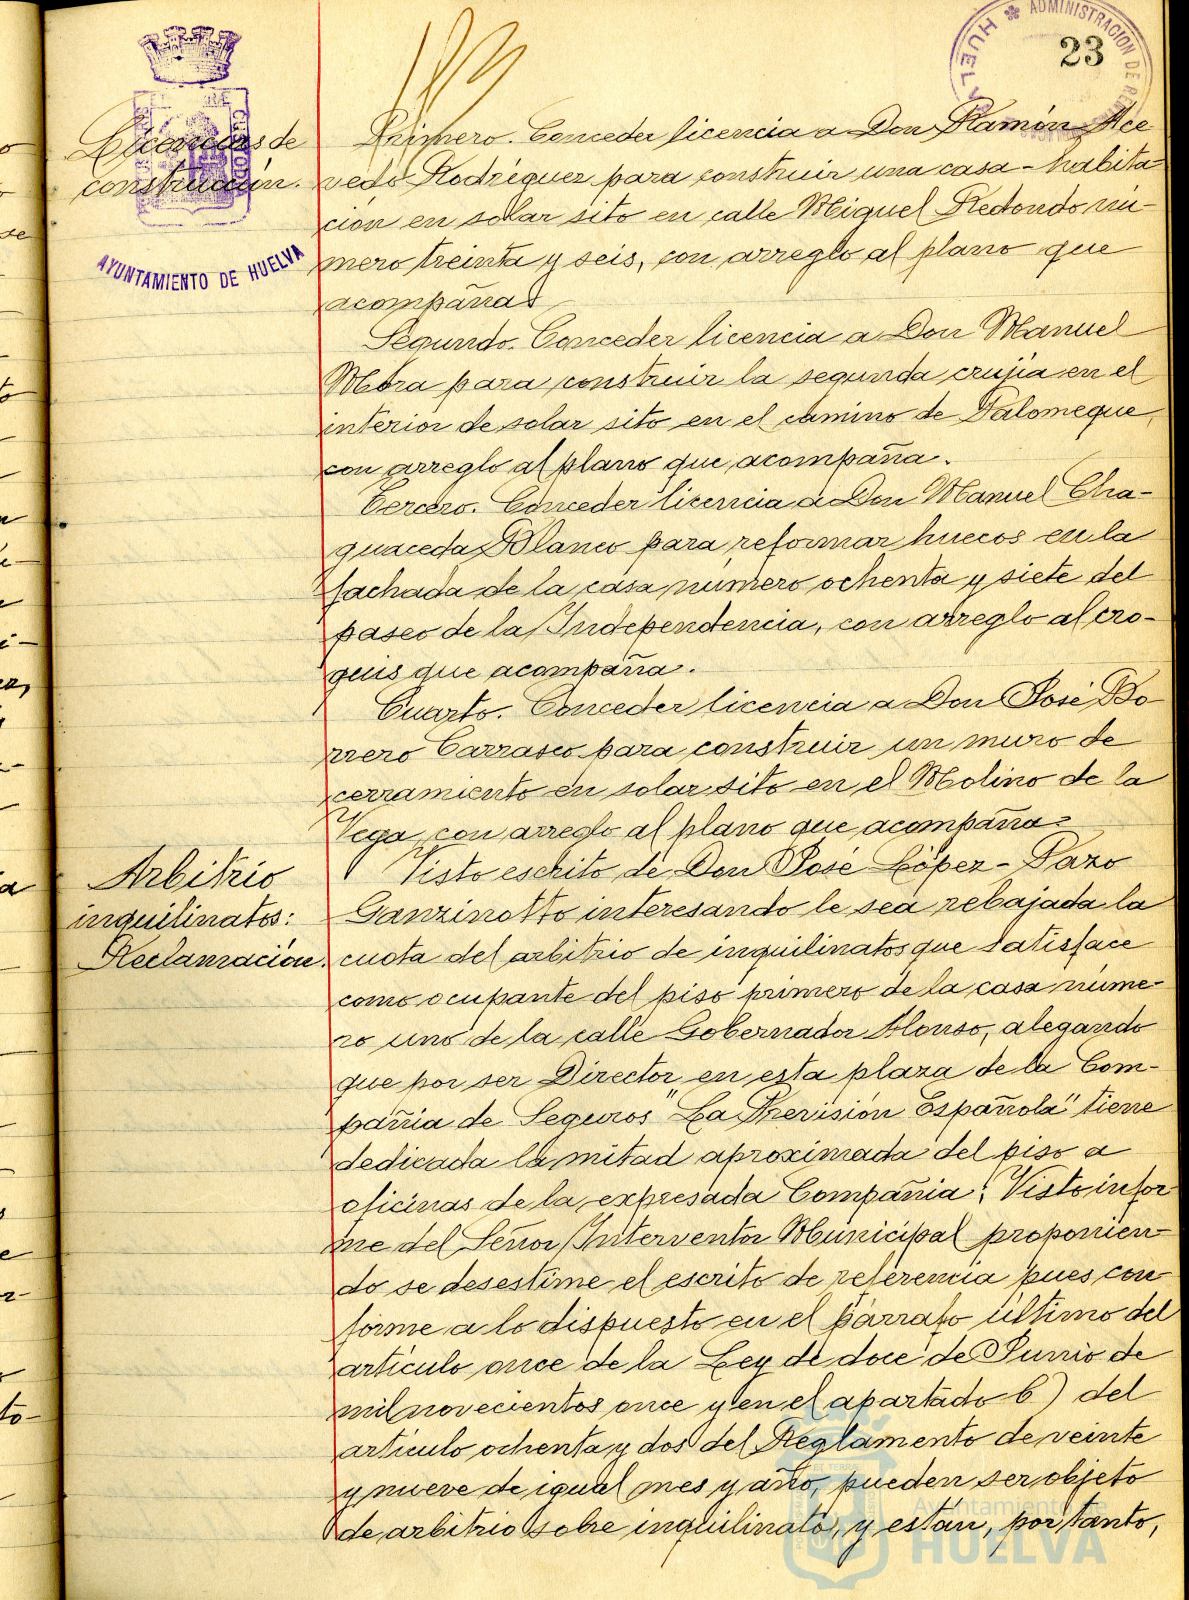 ADMINISTRACION DE RE
HUELVA
23
Licencias de
construcción.
AYUNTAMIENTO DE HUELVA
Primero. Conceder licencia a Don Ramón Ace
vedo Rodríguez para construir una casa-habita-
ción en solar sito en calle Miguel Redondo nú-
mero treinta y seis, con arreglo al plano que
acompaña.
Segundo. Conceder licencia a Don Manuel
Mora para construir la segunda crujía en el
interior de solar sito en el camino de Palomeque,
con arreglo al plano que acompaña.
Tercero. Conceder licencia a Don Manuel Cha-
guaceda Blanco para reformar huecos en la
fachada de la casa número ochenta y siete del
paseo de la Independencia, con arreglo al cro-
quis que acompaña.
Cuarto. Conceder licencia a Don José Bo-
rrero Carrasco para construir un muro de
cerramiento en solar sito en el Molino de la
Vega, con arreglo al plano que acompaña.
Arbitrio
inquilinatos:
Reclamación.
Visto escrito de Don José López-Pazo
Ganzinotto interesando le sea rebajada la
cuota del arbitrio de inquilinatos que satisface
como ocupante del piso primero de la casa núme-
ro uno de la calle Gobernador Alonso, alegando
que por ser Director en esta plaza de la Com-
pañia de Seguros "La Previsión Española" tiene
dedicada la mitad aproximada del piso a
oficinas de la expresada Compañia; Visto infor
me del Señor Interventor Municipal proponien-
do se desestime el escrito de referencia pues con
forme a lo dispuesto en el párrafo último del
artículo once de la Ley de doce de Junio de
mil novecientos once y en el apartado b) del
artículo ochenta y dos del Reglamento de veinte
y nueve de igual mes y año, pueden ser objeto
de arbitrio sobre inquilinato, y están, por tanto,
Ayuntamiento de
HUELVA